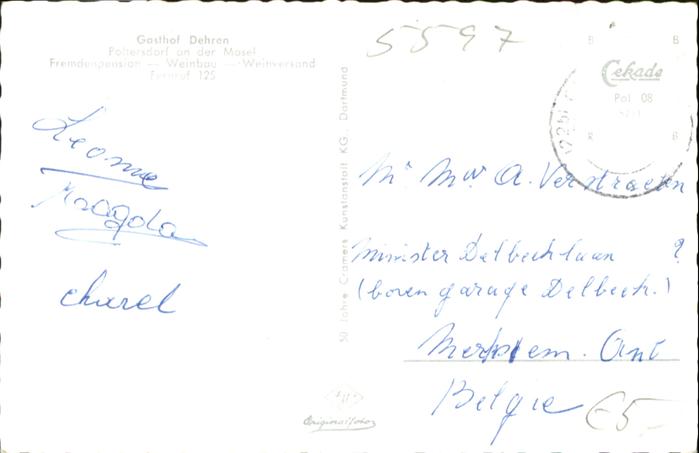 Gasthof Dehren
Poltersdorf an der Mosel
Fremdenpension — Weinbau — Weinversand
Fernruf 125
5597
B B
Cekade
Pol 08
R B
Leonne
Magda
Charel
50 Jahre Cramers Kunstanstalt KG., Dortmund
Mr Mw. A. Verstraeten
Minister Delbecklaan ?
(boven garage Delbeck.)
Merksem. Ant
België
€5-
Originalfoto